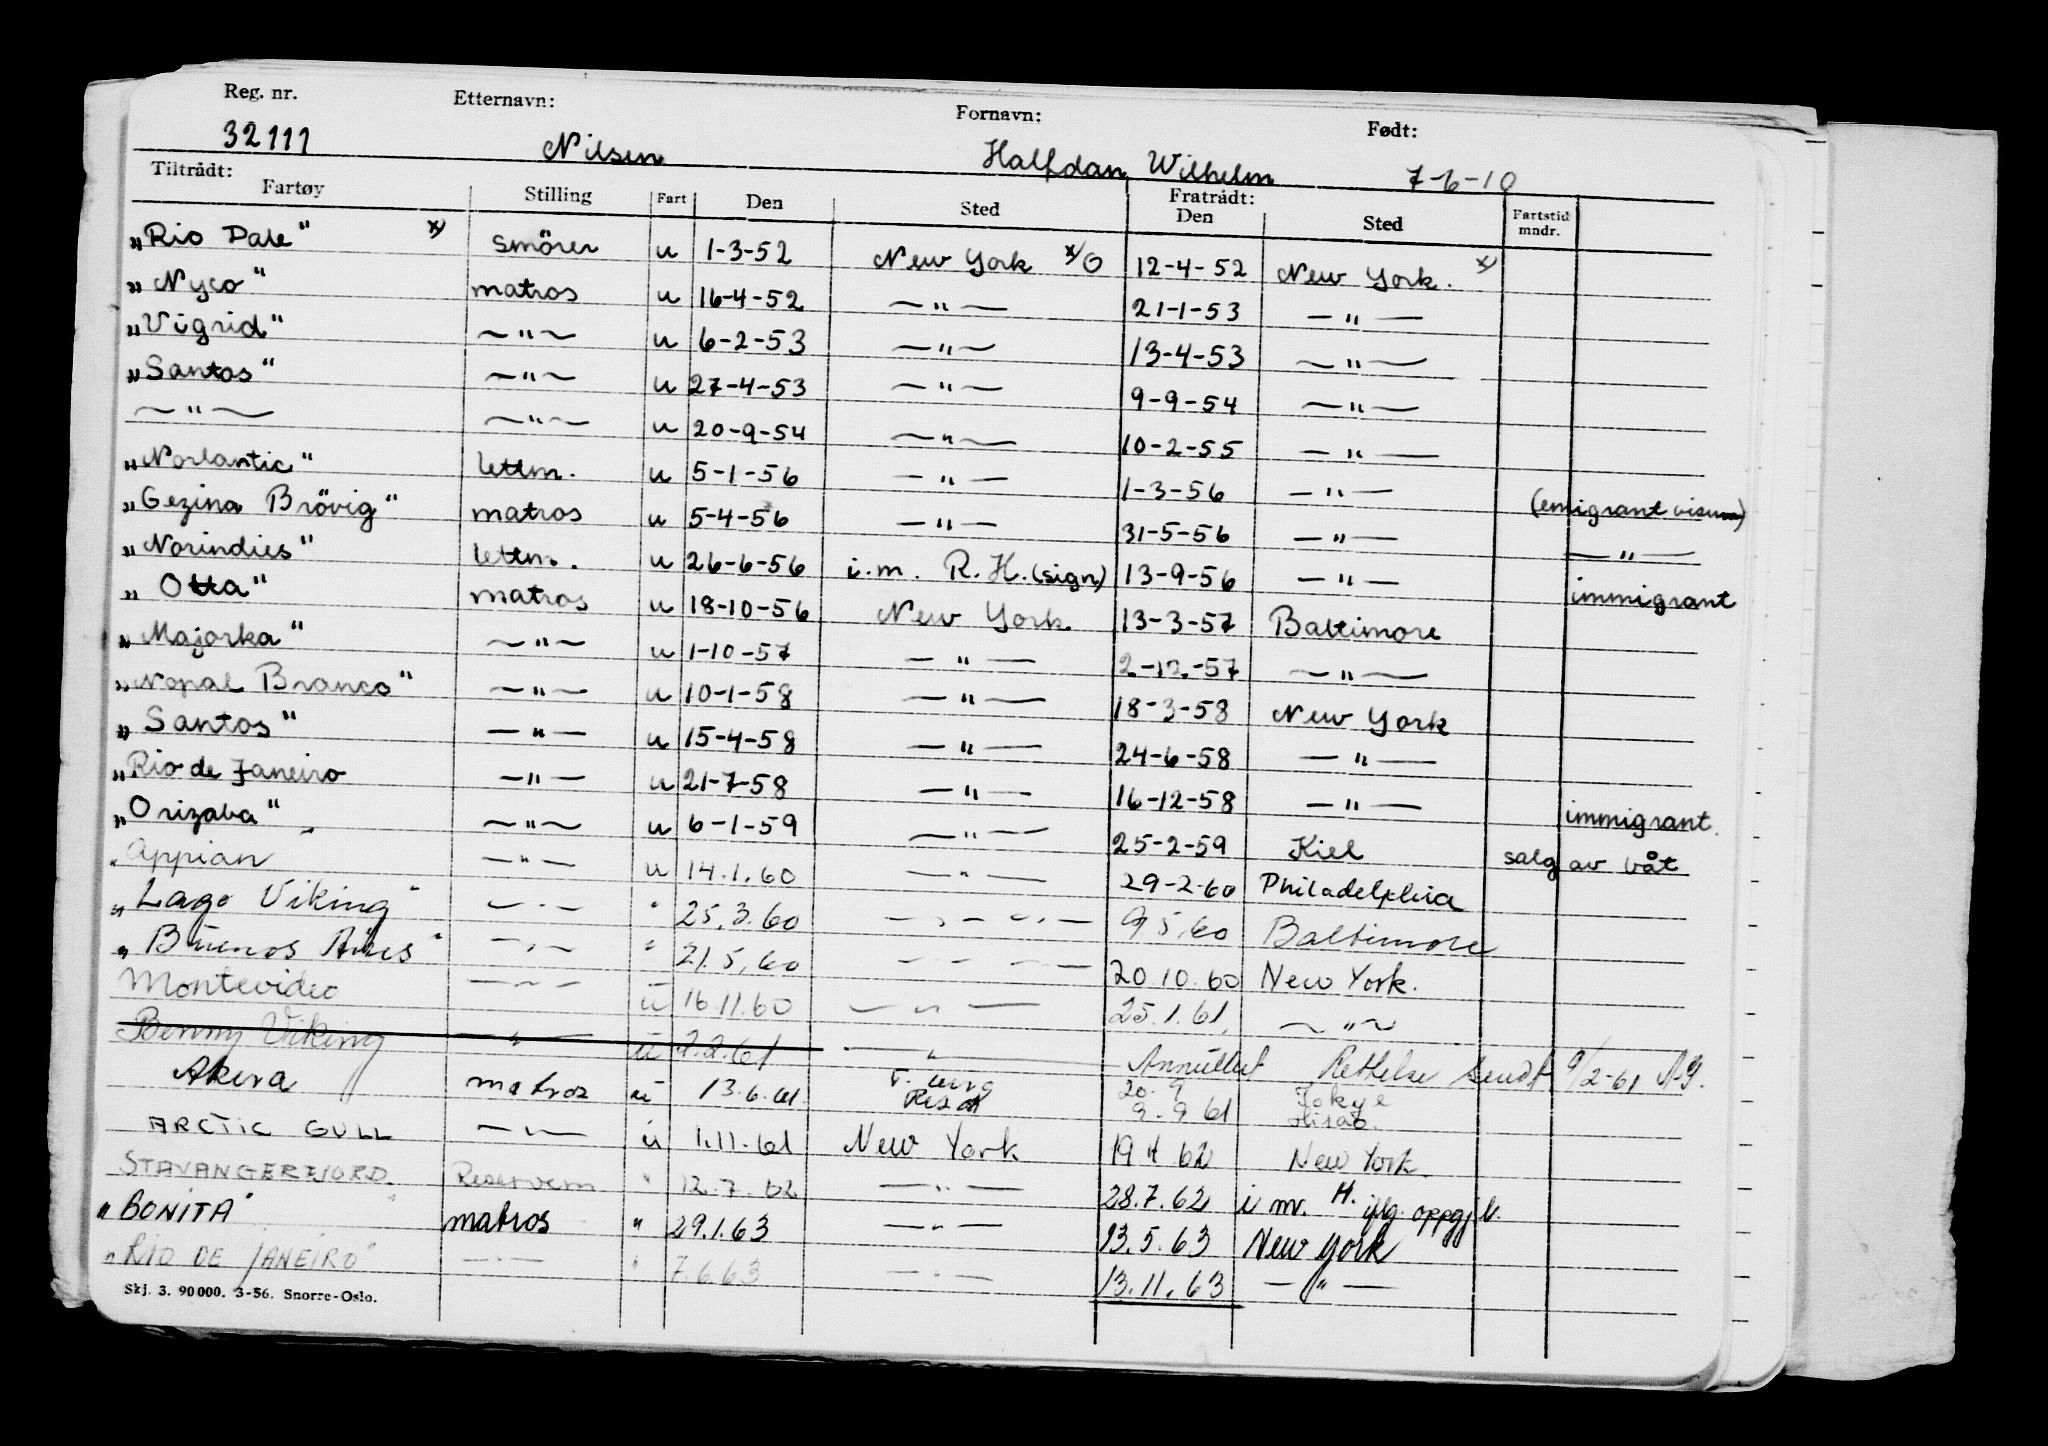 Reg. nr. Etternavn: Fornavn: Født:
32111 Nilsen Halfdan Wilhelm 7-6-10
Tiltrådt: Fratrådt:
Fartøy Stilling Fart Den Sted Den Sted Fartstid mndr.
„Rio Dale" x) smörer u 1-3-52 New York x/O 12-4-52 New York. x)
„Nyco" matros u 16-4-52 —"— 21-1-53 —"—
„Vigrid" —"— u 6-2-53 —"— 13-4-53 —"—
„Santos" —"— u 27-4-53 —"— 9-9-54 —"—
—"— —"— u 20-9-54 —"— 10-2-55 —"—
„Norlantic" lettm. u 5-1-56 —"— 1-3-56 —"— (emigrant visum)
„Gezina Brövig" matros u 5-4-56 —"— 31-5-56 —"— —"—
„Norindies" lettm. u 26-6-56 i.m. R.H. (sign) 13-9-56 —"— immigrant
„Otta" matros u 18-10-56 New York 13-3-57 Baltimore
„Majorka" —"— u 1-10-57 —"— 2-12-57 —"—
„Nopal Branco" —"— u 10-1-58 —"— 18-3-58 New York
„Santos" —"— u 15-4-58 —"— 24-6-58 —"—
„Rio de Janeiro —"— u 21-7-58 —"— 16-12-58 —"— immigrant.
„Orizaba" —"— u 6-1-59 —"— 25-2-59 Kiel salg av båt
„Appian" —"— u 14.1.60 —"— 29-2-60 Philadelphia
„Lago Viking" —"— " 25.3.60 —"— 9.5.60 Baltimore
„Buenos Aires" —"— " 21.5.60 —"— 20.10.60 New York.
Montevideo —"— u 16.11.60 —"— 25.1.61. —"—
Benny Viking —"— u 2.2.61 —"— Annullert Rettelse sendt 9/2-61
Akera matros u 13.6.61 20.9 Tokyo
9.9 61
ARCTIC GULL —"— u 1.11.61 New York 19 4 62 New York
STAVANGERFJORD. Reservem " 12.7.62 —"— 28.7.62 i mr. H. iflg. oppgj.l.
„BONITA" matros " 29.1.63 —"— 13.5.63 New York
„RIO DE JANEIRO" —"— " 7.6.63 —"— 13.11.63 —"—
Skj. 3. 90 000. 3-56. Snorre-Oslo.